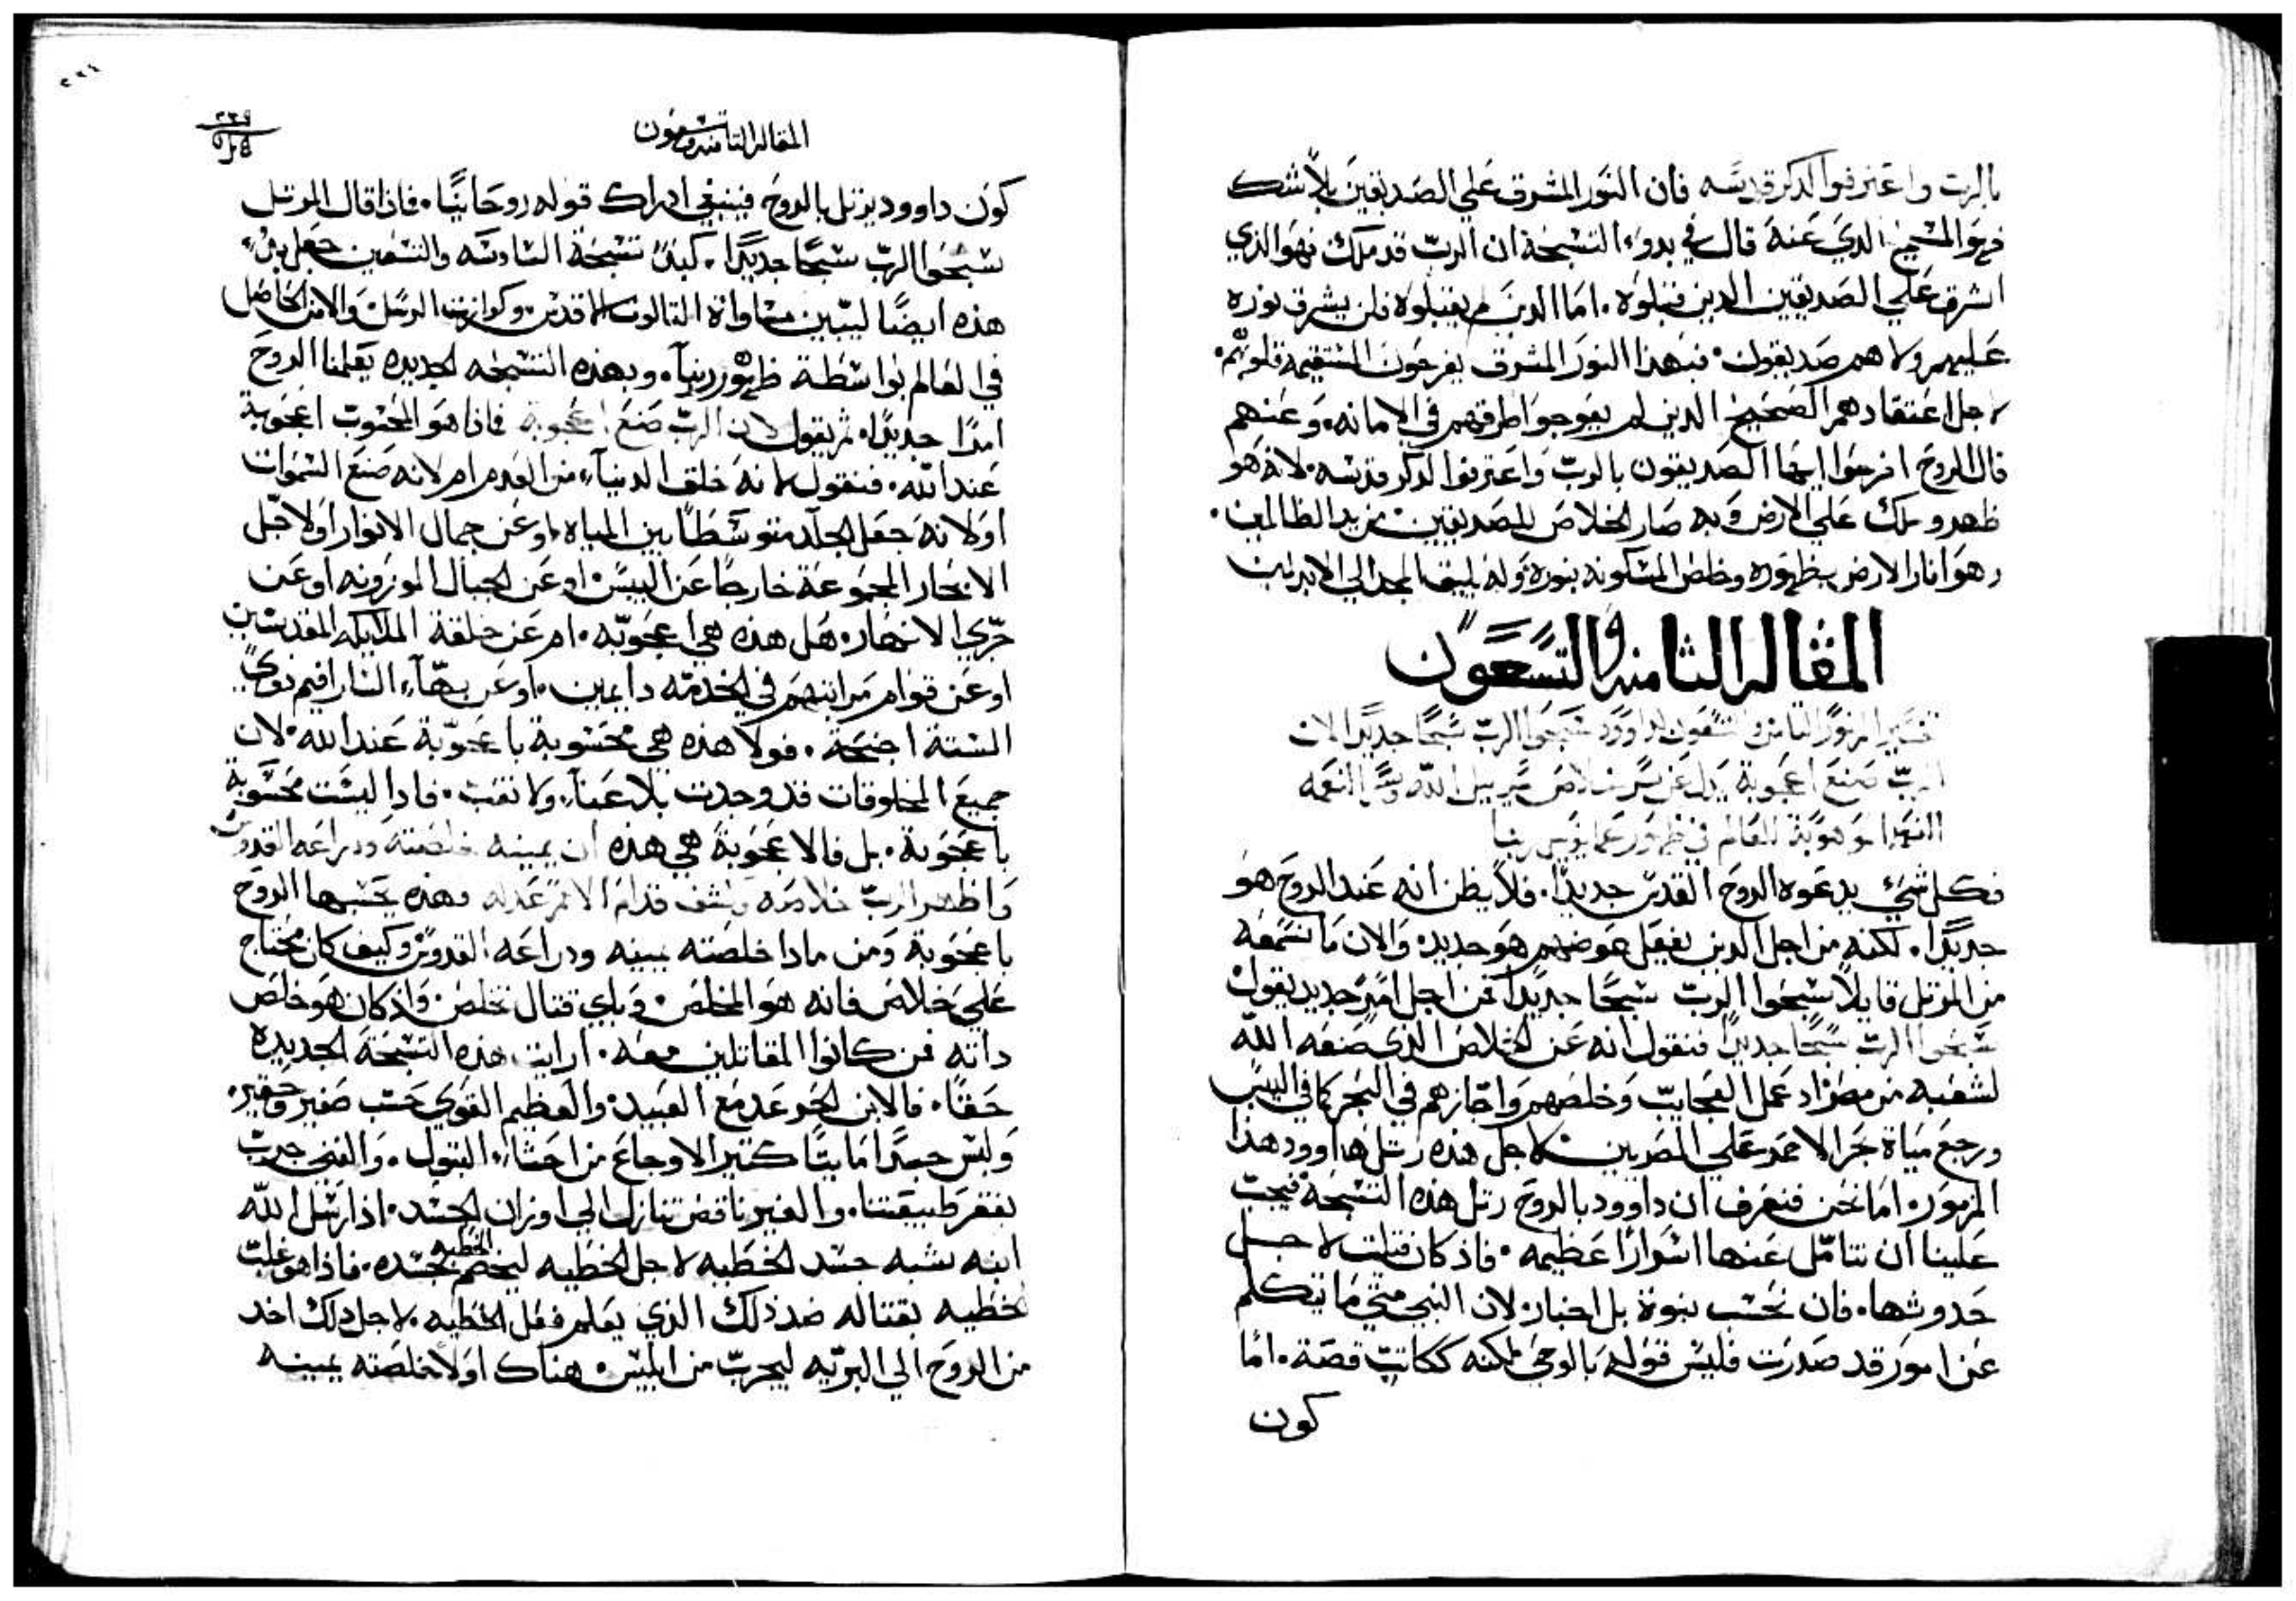 بالرب واعترفوا لذكر قدسه فان النور المشرق علي الصديقين بلا شك
هو المسيح الدي عنه قال في بدوء التسبحة ان الرب قد ملك فهو الذي
اشرق علي الصديقين الدين قبلوه. اما الدين لم يقبلوه فلن يشرق نوره
عليهم ولا هم صديقون. فبهذا النور المشرق يفرحون المستقيمه قلوبهم.
لاجل اعتقادهم الصحيح الدين لم يعوجوا طرقهم في الامانه. وعنهم
قال الروح افرحوا ايها الصديقون بالرب واعترفوا لدكر قدسه. لانه هو
ظهر وملك علي الارض وبه صار الخلاص للصديقين الظالمين.
وهو انار الارض بظهوره وخلص المسكونه بنوره وله يليق المجد الي الابد امين
المقاله الثامنه والتسعون
تفسير المزمور الثامن والتسعون لداوود سبحوا الرب سبحًا جديدًا لان
الرب صنع اعجوبة يدل عن سر خلاص الله وسر النعمه
الموهوبة للعالم في ظهور ربنا
فكل شيء يدعوه الروح القدس جديدًا. فلا يظن انه عند الروح هو
جديدًا. لكنه من اجل الدين يفعل عوضهم هو جديد. والان ما نسمعه
من المرتل قايلاً سبحوا الرب سبحًا جديدًا عن اجل امر جديد يقول
سبحوا الرب سبحًا جديدًا فنقول انه عن الخلاص الذي صنعه الله
لشعبه من مصر اد عمل العجايب وخلصهم واجازهم في البحر كما في اليبس
ورجع مياة بحر الاحمر علي المصريين. لاجل هذه رتل داوود هذا
المزمور. اما نحن فنعرف ان داوود بالروح رتل هذه التسبحة فيجب
علينا ان نتامل عنها اسرارًا عظيمه. فاذ كان قيلت لاجل
حدوثها. فان تحسب نبوة بل اخبار. لان النبي متي ما يتكلم
عن امور قد صدرت فليس قوله بالوحي لكنه ككاتب قصة. اما
كون
المقاله الثامنه وتسعون
كون داوود يرتل بالروح فينبغي ادراك قوله روحانيًا. فاذا قال المرتل
سبحوا الرب سبحًا جديدًا. كمثل تسبحة السادسه والتسعين جعل بدوء
هذه ايضًا ليبين مساواة التالوت الاقدس وكرازت الرسل والامن الحاصل
في العالم بواسطة ظهور ربنا. وبهذه التسبحه الجديده يعلمنا الروح
امرًا جديدًا. ثم يقول لان الرب صنع اعجوبة فاذا هو المحسوب اعجوبة
عند الله. فنقول لانه خلق الدنياء من العدم ام لانه صنع السموات
او لانه جعل الجلد متوسطًا بين المياه. او عن جمال الانوار او لاجل
الابحار المجموعة خارجًا عن اليبس. او عن الجبال الموزونه او عن
جري الانهار. هل هذه هي اعجوبه. ام عن خلقة الملايكه المقدسين
او عن قوام مراتبهم في الخدمه دايمين. او عن بهاء السارافيم دوي
الستة اجنحة. فولا هذه هي محسوبة باعجوبة عند الله. لان
جميع المخلوقات قد وجدت بلا عناء ولا تعب. فادا ليست محسوبة
باعجوبة. بل فالاعجوبة هي هذه ان يمينه خلصته ودراعه القدوس
واظهر الرب خلاصه وكشف قدام الامم عدله وهذه يحسبها الروح
باعجوبة ومن مادا خلصته يمينه ودراعه القدوس وكيف كان محتاج
علي خلاص فانه هو المخلص. وباي قتال تخلص. واذ كان هو خلص
داته فمن كانوا المقاتلين معه. ارايت هذه التسبحة الجديدة
حقًا. فالابن الحر عد مع العبيد. والعظيم القوي حسب صغير وحقير.
ولبس جسدًا مايتًا كتير الاوجاع من احشاء البتول. والغني جرب
بفقر طبيعتنا. والغير ناقص تنازل الي اوزان الجسد. اذ ارسل الله
ابنه بشبه جسد الخطيه لاجل الخطيه ليخصم الخطيه بجسده. فاذا هو غلب
الخطيه بقتاله ضد ذلك الذي يعلم فعل الخطيه. لاجل دلك اخد
من الروح الي البريه ليجرب من ابليس. هناك اولاً خلصته يمينه